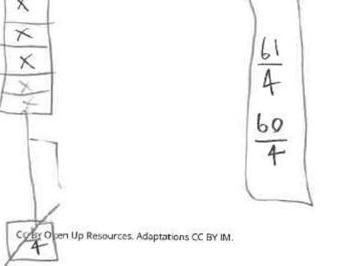 x
x
x
x
x
61/4
60/4
CC BY Open Up Resources. Adaptations CC BY IM.
4